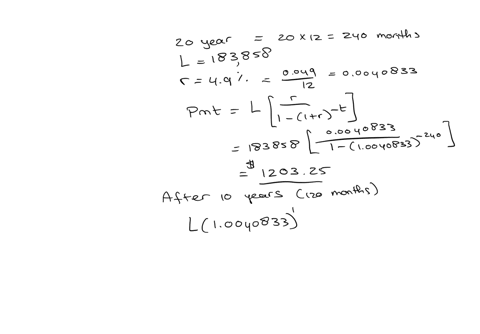 20 year = 20 x 12 = 240 months
L = 183,858
r = 4.9 % = 0.049/12 = 0.0040833
Pmt = L [ r / 1-(1+r)^-t ]
= 183858 [ 0.0040833 / 1-(1.0040833)^-240 ]
= $1203.25
After 10 years (120 months)
L(1.0040833)^1